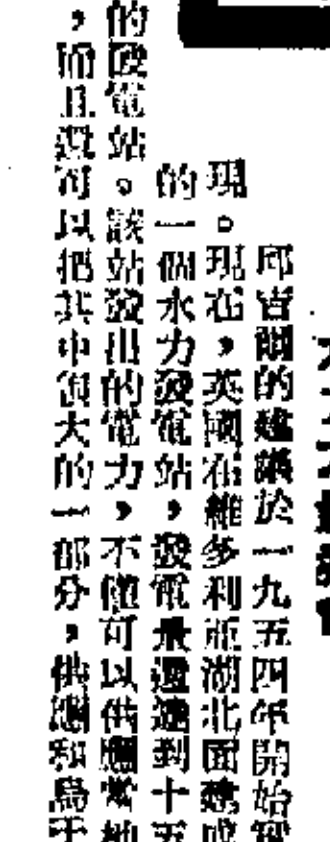 邱吉爾的建議於一九五四年開始實
現。現在,英國在維多利亞湖北面建成
的一個水力發電站,發電量還達到十五
的發電站。該站發出的電力,不僅可以供應當地
,而且還可以把其中很大的一部分,供應和烏干